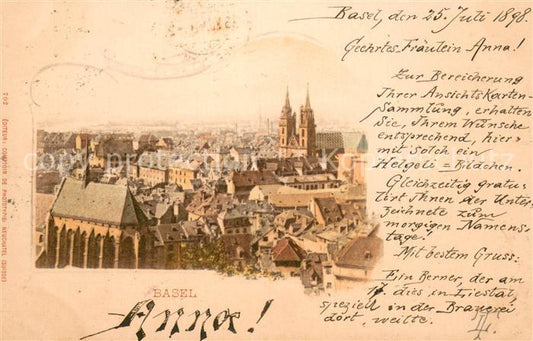 Basel, den 25. Juli 1898.
Geehrtes Fräulein Anna!
Zur Bereicherung
Ihrer Ansichtskarten-
Sammlung, erhalten
Sie, Ihrem Wunsche
entsprechend, hier-
mit solch ein
Helgeli-Bildchen.
Gleichzeitig gratu-
lirt Ihnen der Unter-
zeichnete zum
morgigen Namens-
tage.
Mit bestem Gruss:
Ein Berner, der am
17. dies in Liestal,
speziell in der Brauerei
dort, weilte.
BASEL
Anna!
702 EDITEUR: COMPTOIR DE PHOTOTYPIE, NEUCHATEL (SUISSE)